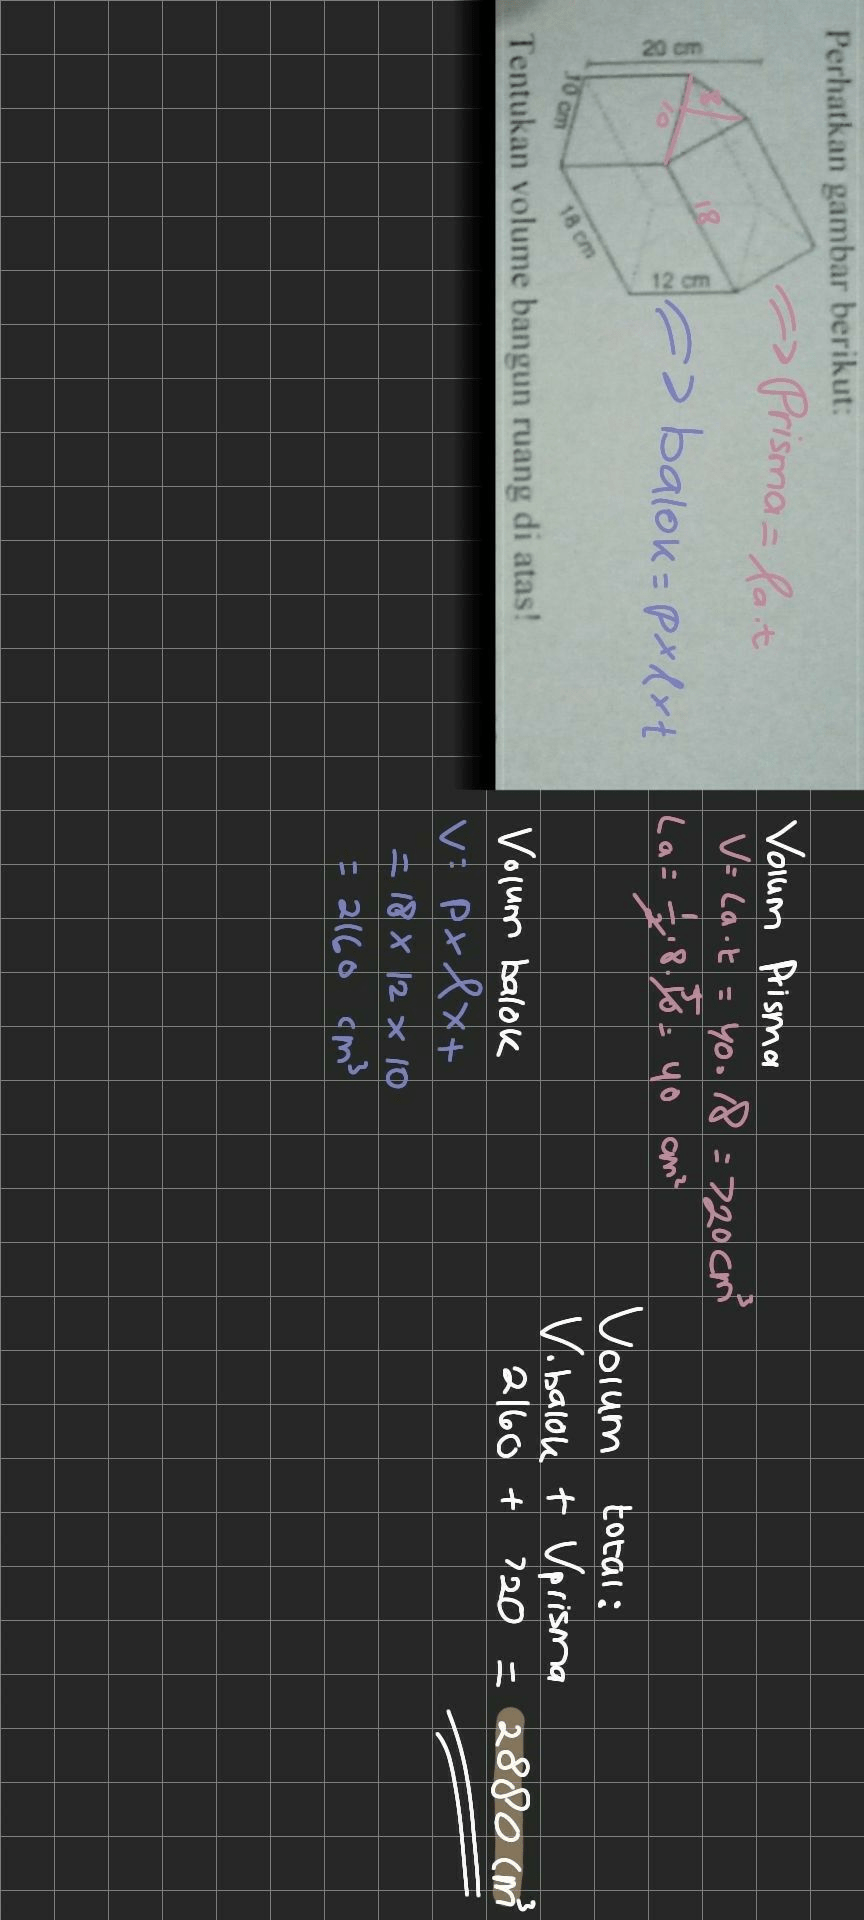 Perhatkan gambar berikut:
20 cm
8
10
18
10 cm
18 cm
12 cm
=> Prisma = la.t
=> balok = p x l x t
Tentukan volume bangun ruang di atas!
Volum Prisma
V = La.t = 40. 18 = 720 cm³
La = 1/2 . 8 . 10 5 = 40 cm²
Volum balok
V = p x l x t
= 18 x 12 x 10
= 2160 cm³
Volum total:
V.balok + Vprisma
2160 + 720 = 2880 cm³